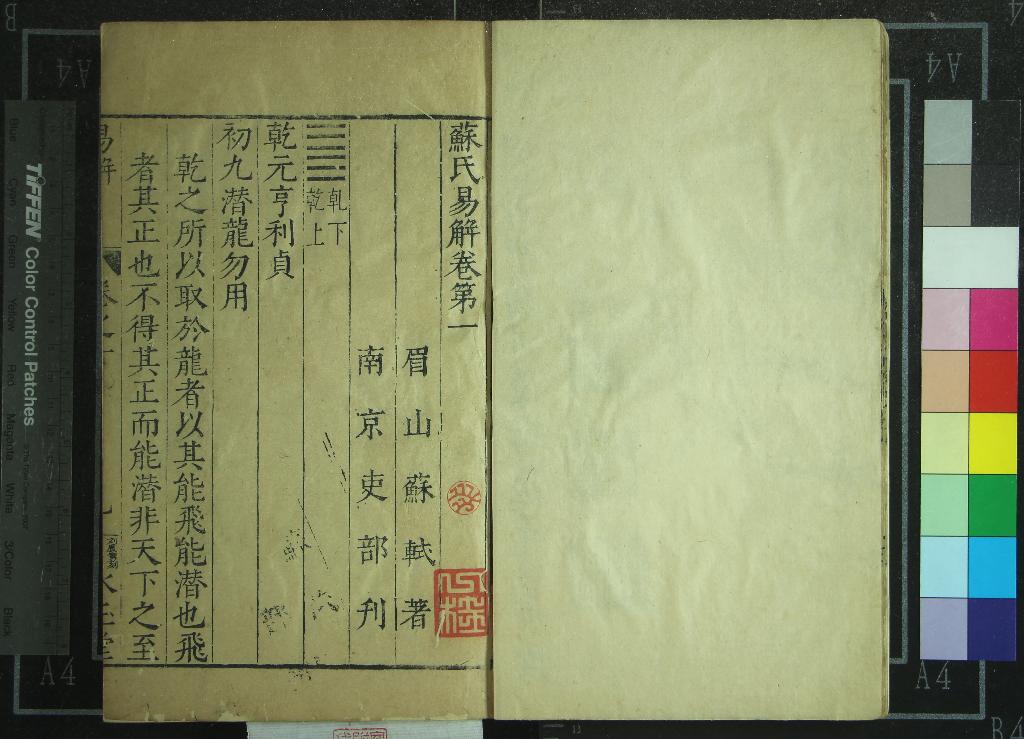 蘇氏易解卷第一
眉山蘇軾著
南京吏部刋
䷀
乾下
乾上
乾元亨利貞
初九潛龍勿用
乾之所以取於龍者以其能飛能潛也飛
者其正也不得其正而能潛非天下之至
易解
TIFFEN Color Control Patches
Blue
Cyan
Green
Yellow
Red
Magenta
White
3/Color
Black
A4
A4
A4
A4
B4